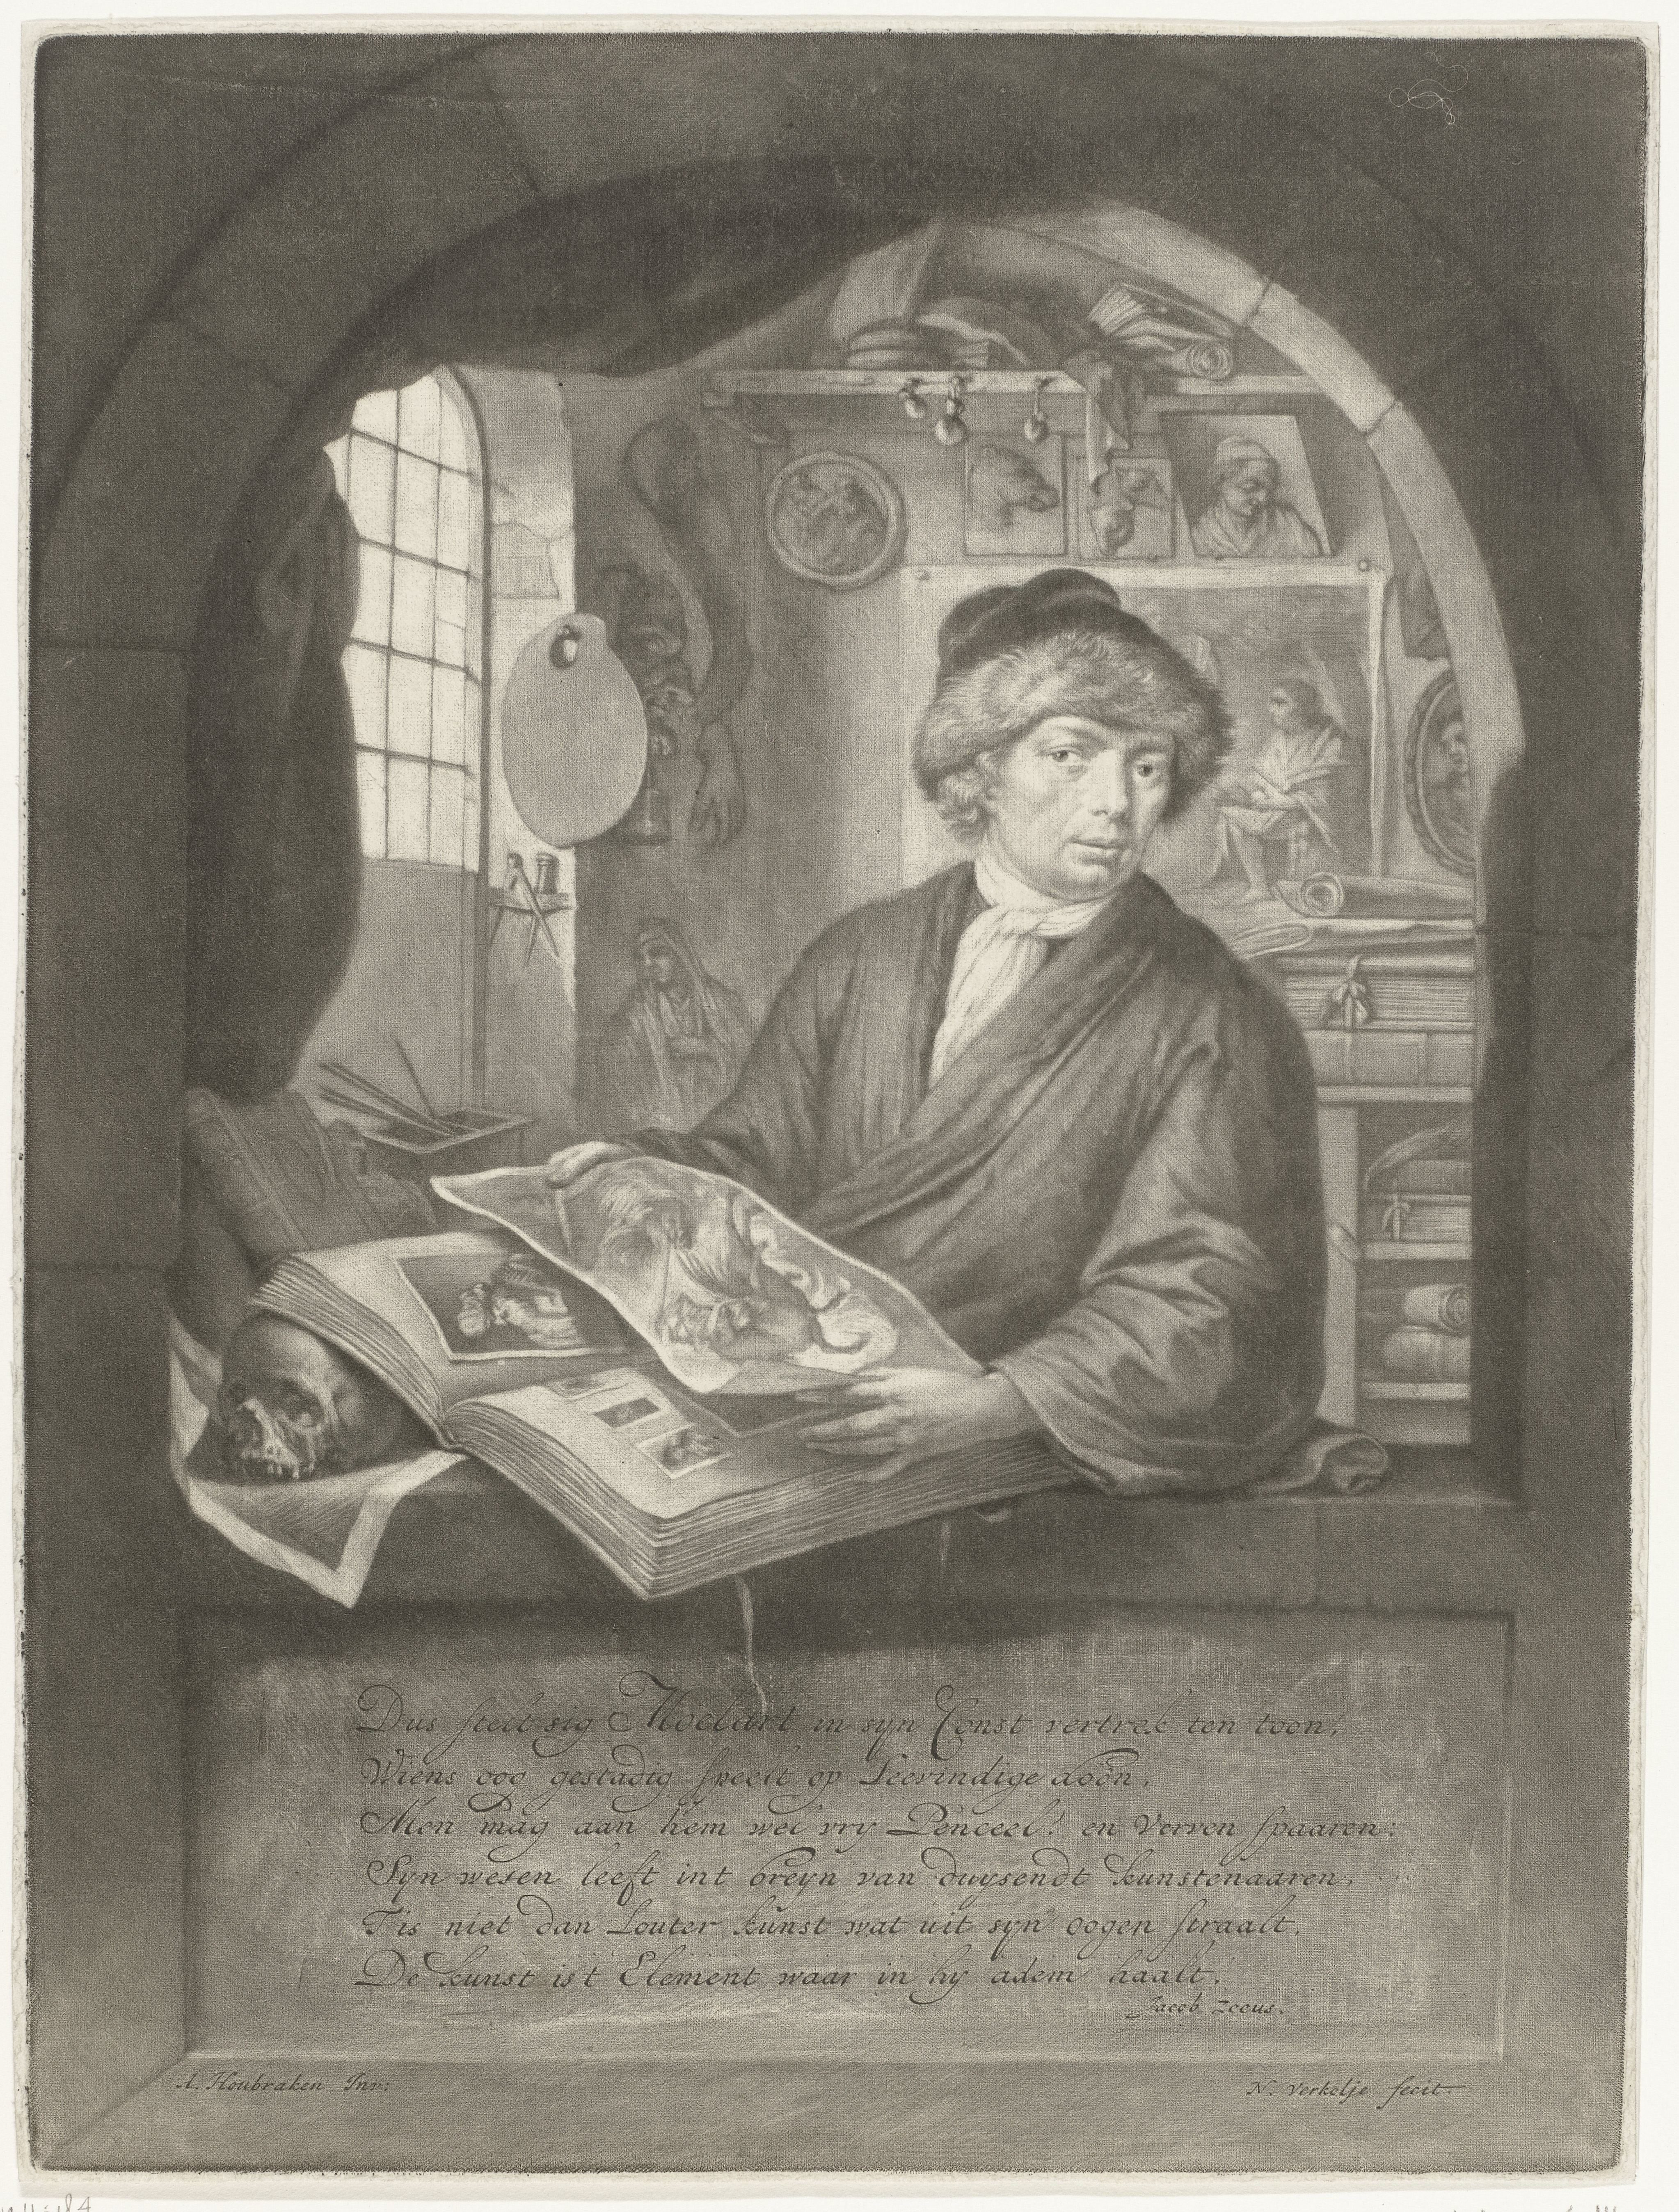 Dus stelt sig Moelart in syn Const vertrek ten toon,
Wiens oog gestadig speelt op Leevindige doôn,
Men mag aan hem wel vry Penceel! en Verven spaaren:
Syn wesen leeft int breyn van duysendt kunstenaaren,
T'is niet dan Louter kunst wat uit syn oogen straalt,
De kunst ist Element waar in hy adem haalt.
Jacob Zeeus.
A. Houbraken Inv:
N. Verkolje fecit.